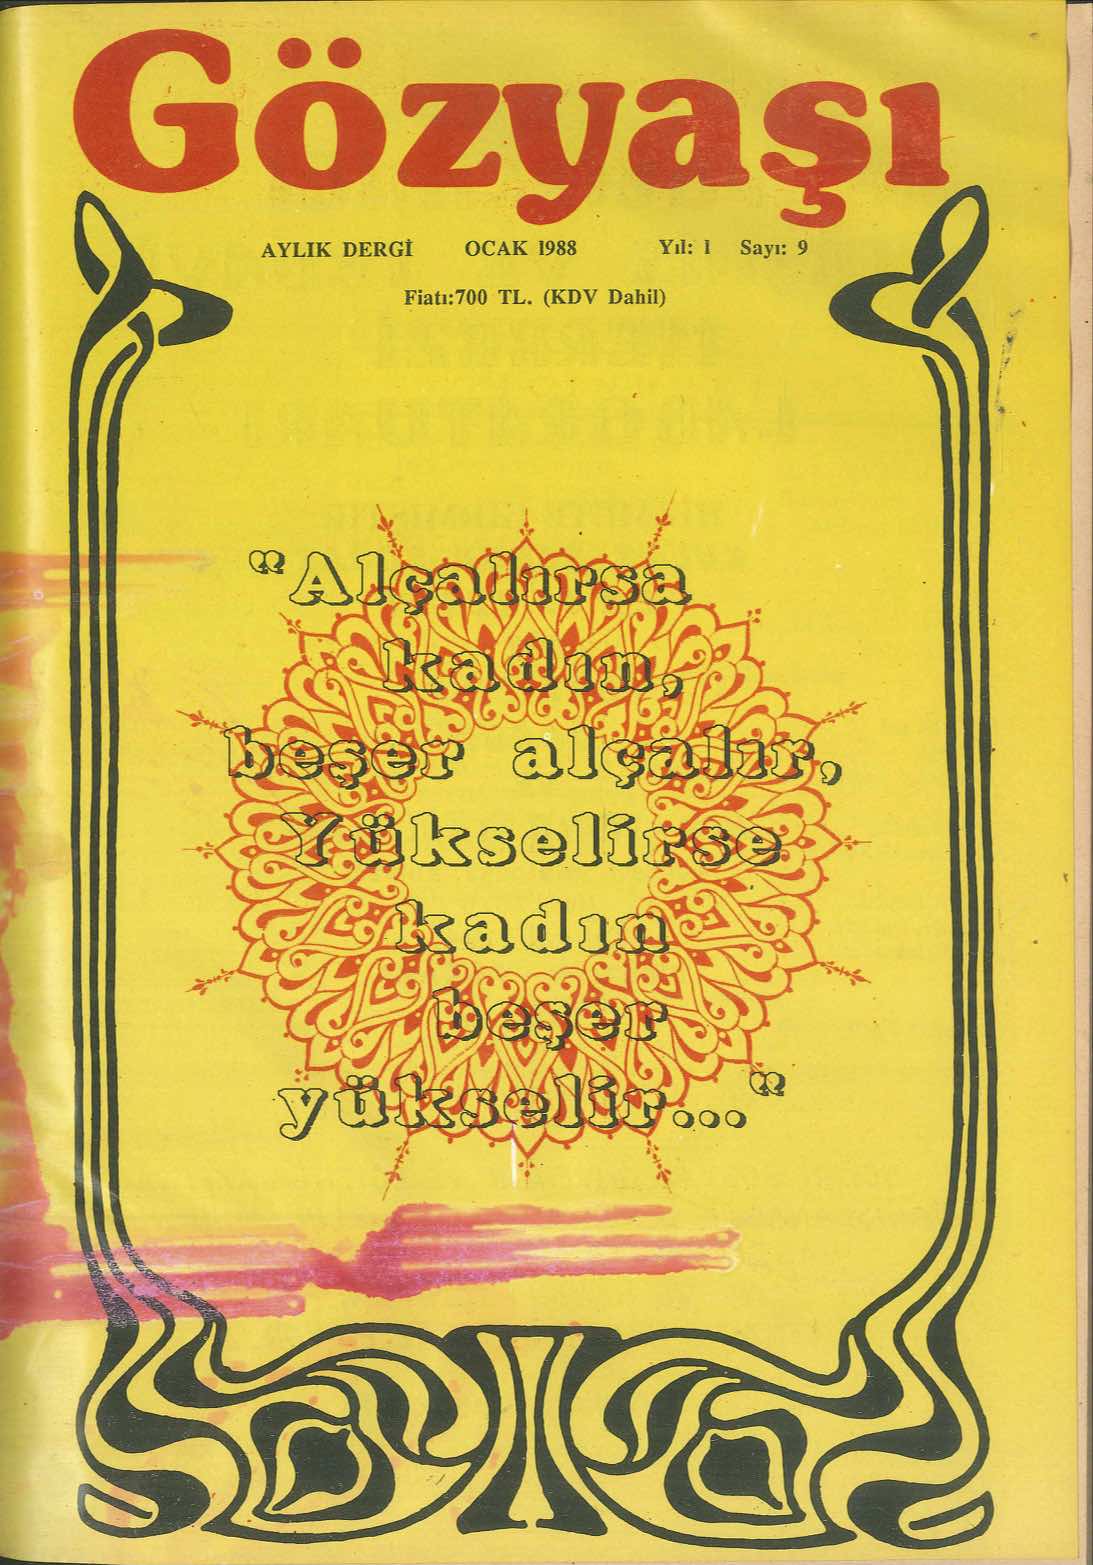 Gözyaşı
AYLIK DERGİ OCAK 1988 Yıl: 1 Sayı: 9
Fiatı:700 TL. (KDV Dahil)
"Alçalırsa
kadın,
beşer alçalır,
Yükselirse
kadın
beşer
yükselir..."